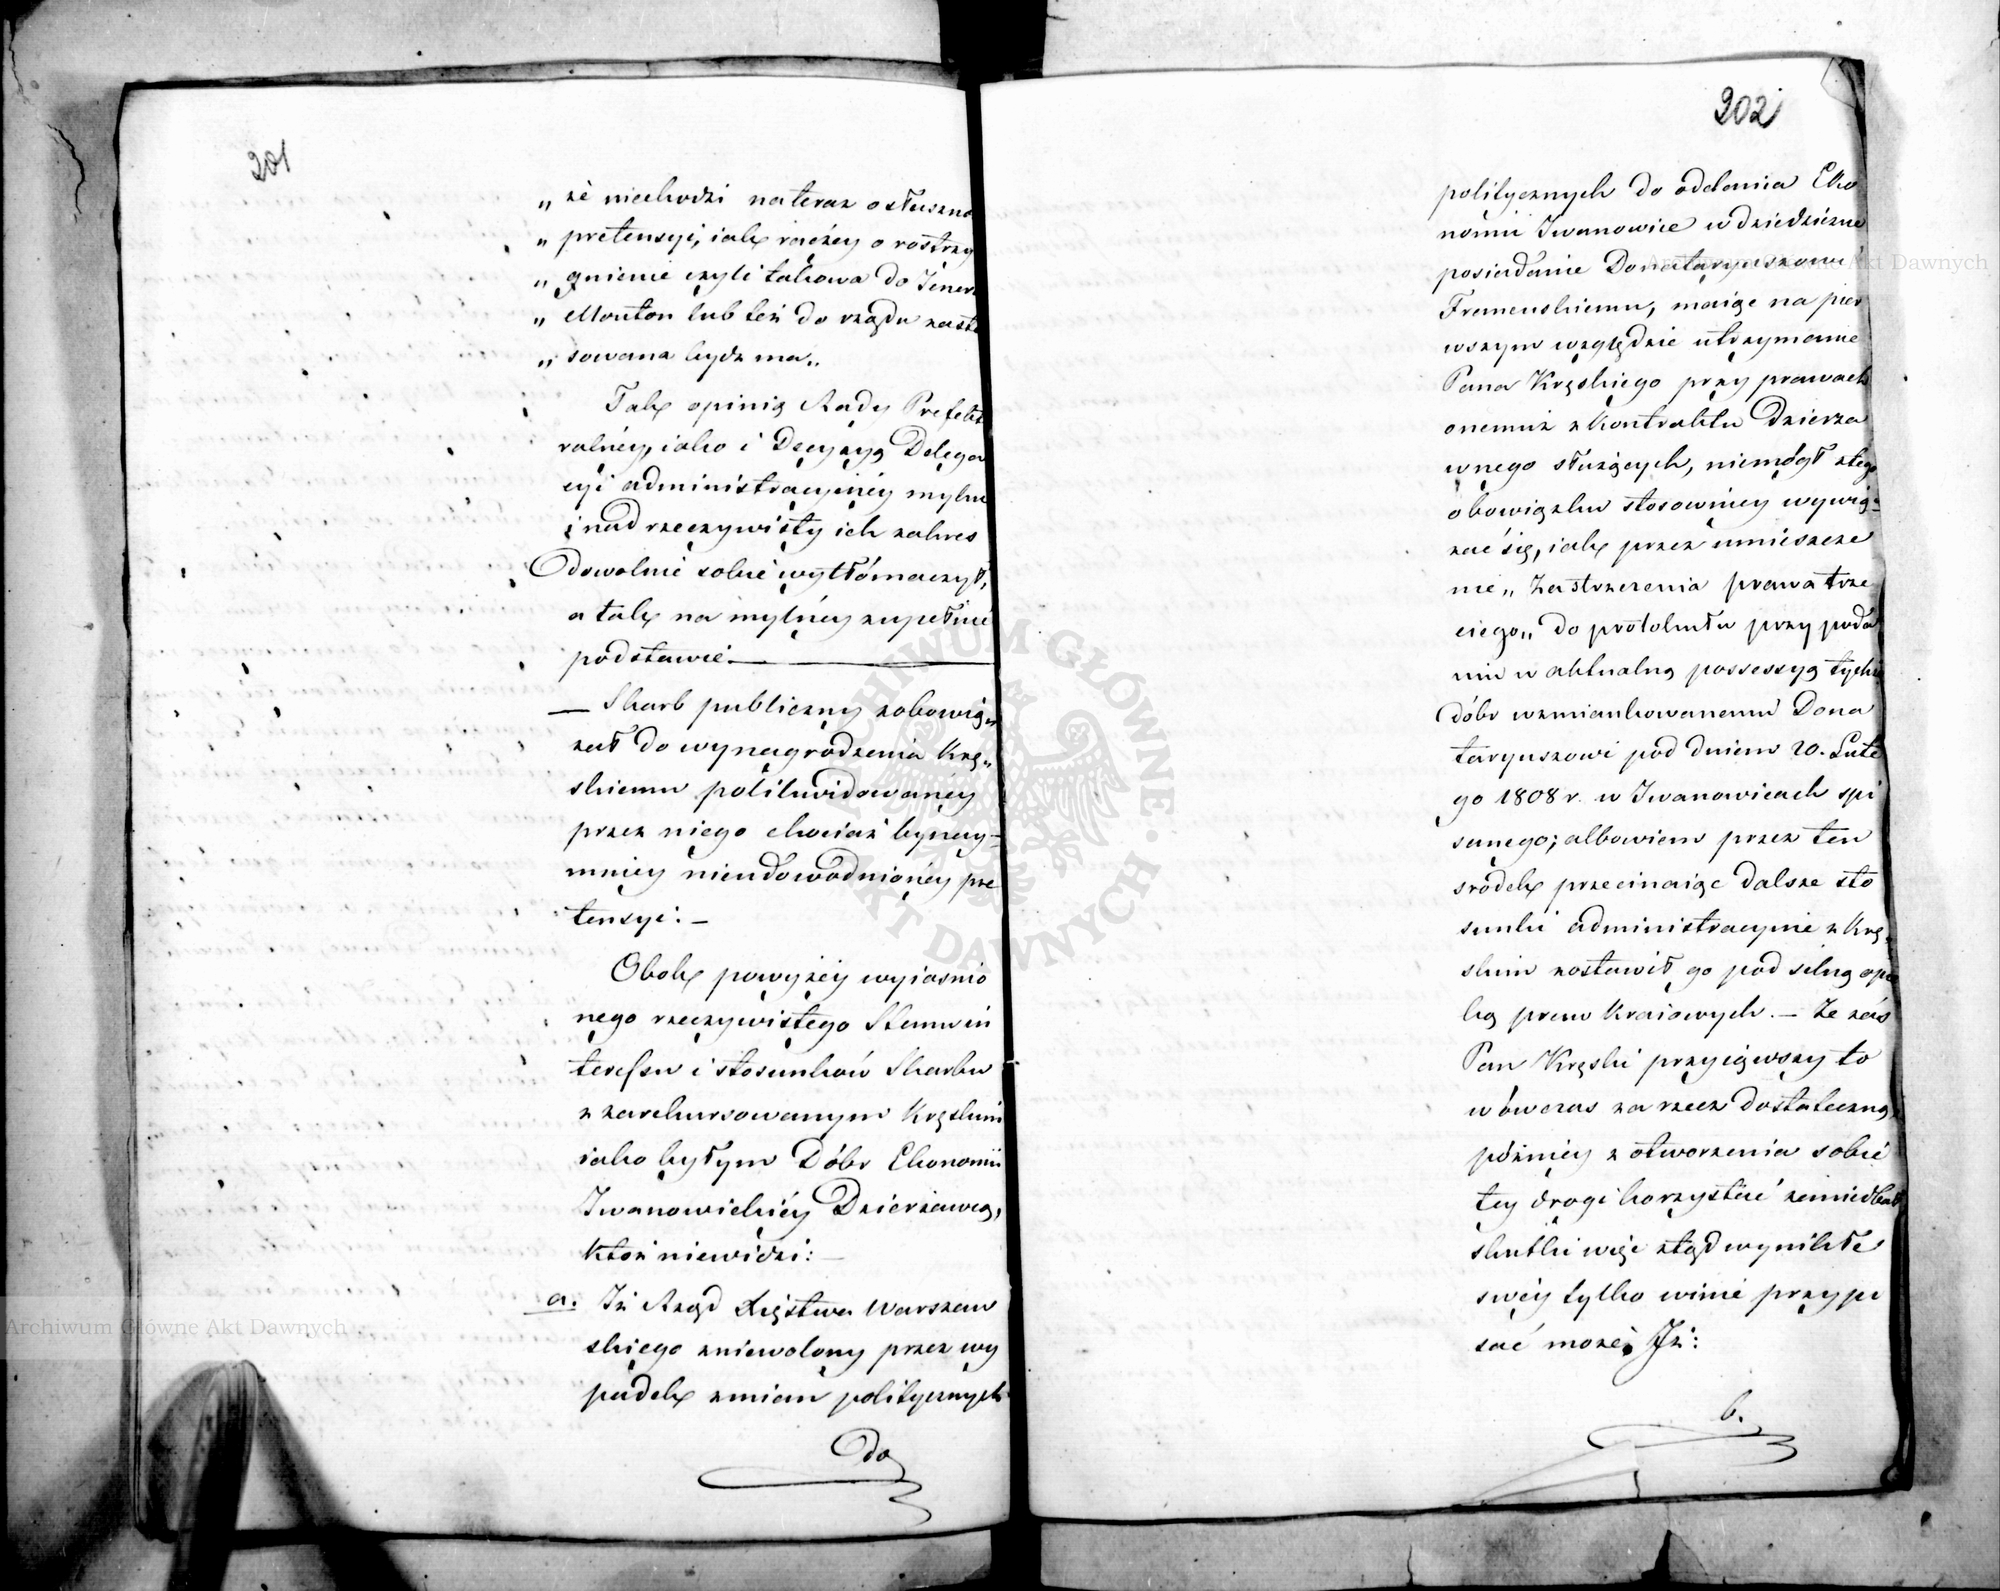 201
„ że niechodzi na teraz o słuszno
„ pretensyi, iak raczéy o rostrzy
„ gnienie czyli takowa do Jenera
„ Mouton lub też do rządu zasto
„ sowana bydz ma„
Tak opinią Rady Prefekt
ralnéy, iako i Decyzyą Delega
cyi administracyinéy mylni
i nad rzeczywisty ich zakres
Dowolnie sobie wytłómaczył,
a tak na mylnéy zupełnie
podstawie. —
— Skarb publiczny zobowią„
zał do wynagrodzenia Krę„
skiemu polikwidowanéy
przez niego chociaż bynay-
mniéy nieudowodnionéy pre
tensyi: —
Obok powyżéy wyiaśnio
nego rzeczywistego Stanu in
teressu i stosunków Skarbu
z zarekursowanym Kręskim
iako byłym Dóbr Ekonomii
Iwanowickiéy Dzierżawcą,
któż niewidzi: —
a. Iż Rząd Xięstwa Warszaw
skiego zniewolony przez wy
padek zmian politycznych
Do
202
politycznych do oddania Eko
nomii Iwanowice w dziedziczne
posiadanie Donataryuszowi
Francuskiemu, maiąc na pier
wszym względzie utrzymanie
Pana Kręskiego przy prawach
onemuż z kontraktu Dzierża
wnego służących, niemógł z tego
obowiązku stosowniéy wywią-
zać się, iak przez umieszcze
nie „ Zastrzeżenia prawa trze
ciego „ do protokułu przy poda
niu w aktualną possessyą tych
dóbr wzmiankowanemu Dona
taryuszowi pod dniem 20. Lute
go 1808 r. w Iwanowicach spi
sanego; albowiem przez ten
srodek przecinaiąc dalsze sto
sunki administracyine z Krę„
skim zostawił go pod silną opie
ką praw Kraiowych. — Że zaś
Pan Kręski przyiąwszy to
wówczas za rzecz dostateczną,
późniéy z otworzenia sobie
téy drogi korzystać zaniedbał
skutki więc ztąd wynikłe
swéy tylko winie przypi
sać może. Iż:
b.